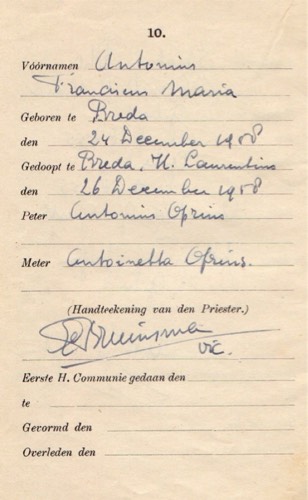 10.
Vóórnamen Antonius
Franciscus Maria
Geboren te Breda
den 24 December 1958
Gedoopt te Breda, H. Laurentius
den 26 December 1958
Peter Antonius Oprins
Meter Antoinetta Oprins.
(Handteekening van den Priester.)
Bruinsma
vic.
Eerste H. Communie gedaan den
te
Gevormd den
Overleden den